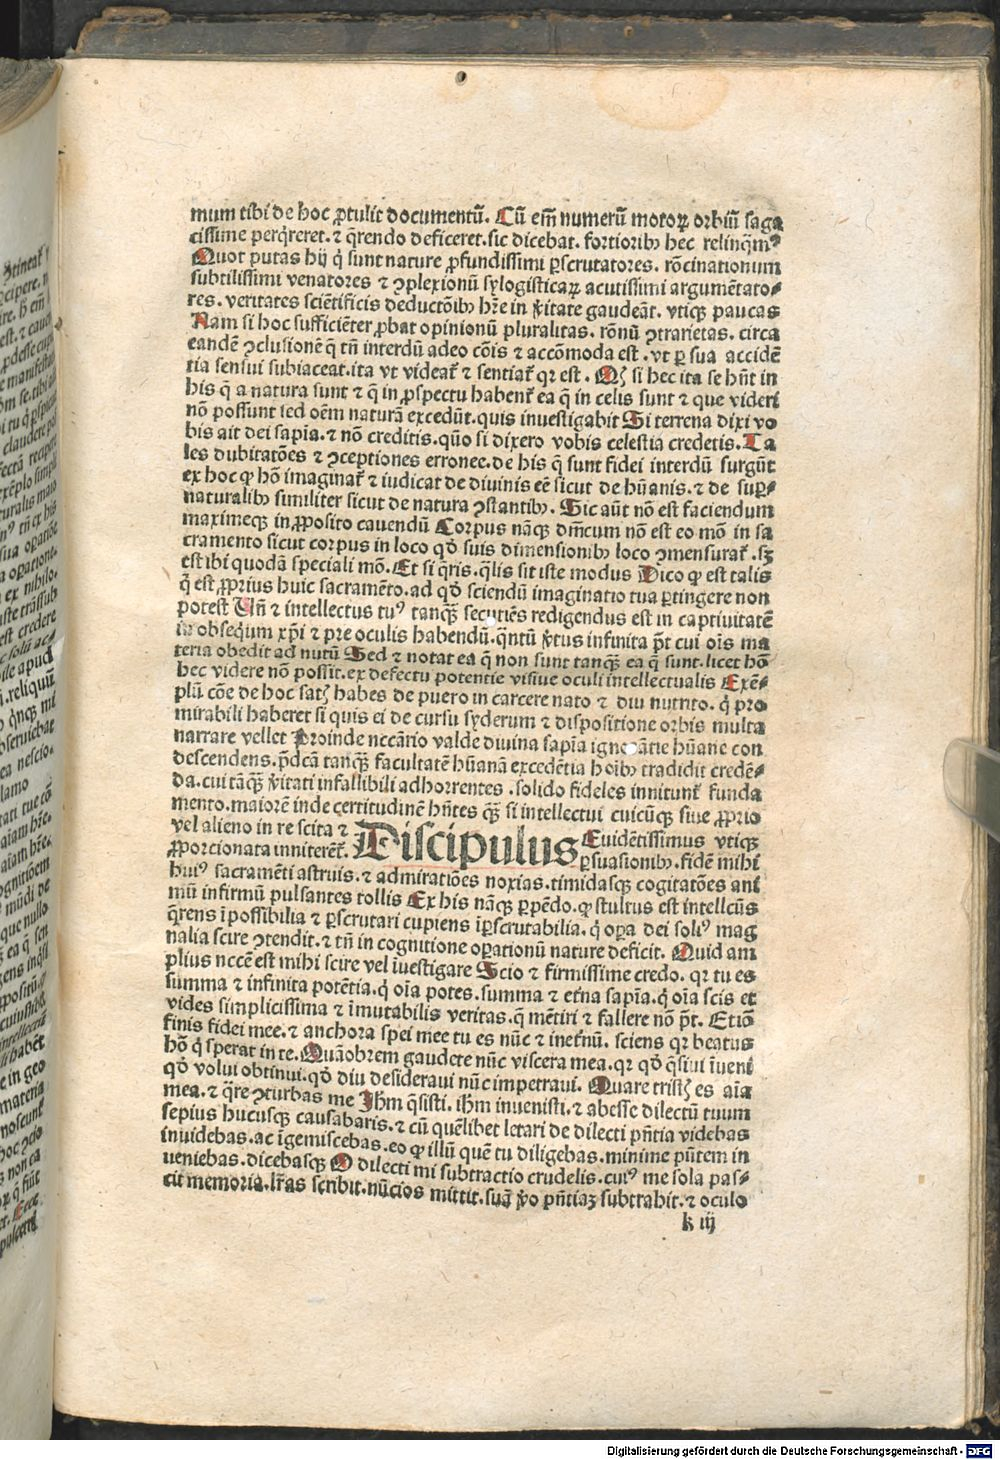 mum tibi de hoc ꝓtulit documentū. Cū em̄ numerū motoꝝ orbiū saga
cissime perq̄reret. ⁊ q̄rendo deficeret. sic dicebat. fortiorib᷒ hec relinq̄mꝰ
Quot putas hij q̄ sunt nature ꝓfundissimi ꝑscrutatores. rōcinationum
subtilissimi venatores ⁊ ꝯplexionū sylogisticaꝝ acutissimi argumētato⸗
res. veritates sciētificis deductōib᷒ hr̄e in ꝟitate gaudeāt. vtiqꝫ paucas
Nam si hoc sufficiēter ꝓbat opinionū pluralitas. rōnū ꝯtrarietas. circa
eandē ꝯclusionē q̄ tn̄ interdū adeo cōis ⁊ accōmoda est. vt ꝑ sua accidē
tia sensui subiaceat. ita vt videat᷑ ⁊ sentiat᷑ qꝛ est. Qꝫ si hec ita se hn̄t in
his q̄ a natura sunt ⁊ q̄ in ꝓspectu habent᷑ ea q̄ in celis sunt ⁊ que videri
nō possunt sed oēm naturā excedūt. quis inuestigabit Si terrena dixi vo
bis ait dei sapīa. ⁊ nō creditis. quō si dixero vobis celestia credetis. Ta
les dubitatōes ⁊ ꝯceptiones erronee. de his q̄ sunt fidei interdū surgūt
ex hoc ꝙ hō imaginat᷑ ⁊ iudicat de diuinis eē sicut de hūanis. ⁊ de suꝑ⸗
naturalib᷒ similiter sicut de natura ꝯstantib᷒. Sic aūt nō est faciendum
maximeqꝫ in ꝓposito cauendū Corpus nāqꝫ dn̄icum nō est eo mō in sa
cramento sicut corpus in loco qd̄ suis dimensionib᷒ loco ꝯmensurat᷑. sꝫ
est ibi quodā speciali mō. Et si q̄ris. q̄lis sit iste modus Dico ꝙ est talis
q̄ est ꝓprius huic sacramēto. ad qd̄ sciendū imaginatio tua ꝑtingere non
potest Un̄ ⁊ intellectus tuꝰ tanqꝫ̄ secutiēs redigendus est in captiuitatē
in obsequim xp̄i ⁊ pre oculis habendū. q̄ntū ꝟtus infinita p̄t cui oīs ma
teria obedit ad nutū Sed ⁊ notat ea q̄ non sunt tanqꝫ̄ ea q̄ sunt. licet hō
hec videre nō possit. ex defectu potentie visiue oculi intellectualis Exē⸗
plū cōe de hoc satꝭ habes de puero in carcere nato ⁊ diu nutrito. q̄ pro
mirabili haberet si quis ei de cursu syderum ⁊ dispositione orbis multa
narrare vellet Proinde nccāriо valde diuina sapīa ignorātie hūane con
descendens. p̄dcā tanqꝫ̄ facultatē hūanā excedētia hoīb᷒ tradidit credē⸗
da. cui tāqꝫ̄ ꝟitati infallibili adhorrentes. solido fideles innitunt᷑ funda
mento. maiorē inde certitudinē hn̄tes qꝫ̄ si intellectui cuicūqꝫ siue ꝓprio
vel alieno in re scita ⁊
ꝓporcionata inniterēt᷑.
Discipulus
Euidētissimus vtiqꝫ
ꝑsuasionib᷒. fidē mihi
huiꝰ sacramēti astruis. ⁊ admiratiōes noxias. timidasqꝫ cogitatōes ani
mū infirmū pulsantes tollis Ex his nāqꝫ ꝑpēdo. ꝙ stultus est intellcūs
q̄rens īpossibilia ⁊ ꝑscrutari cupiens īꝑscrutabilia. q̄ oꝑa dei soliꝰ mag
nalia scire ꝯtendit. ⁊ tn̄ in cognitione oꝑationū nature deficit. Quid am
plius nccē est mihi scire vel īuestigare Scio ⁊ firmissime credo. qꝛ tu es
summa ⁊ infinita potētia. q̄ oīa potes. summa ⁊ et̄na sapīa. q̄ oīa scis et
vides simplicissima ⁊ īmutabilis veritas. q̄ mētiri ⁊ fallere nō p̄t. Etiō
finis fidei mee. ⁊ anchora spei mee tu es nūc ⁊ inet̄nū. sciens qꝛ beatus
hō q̄ sperat in te. Quāobrem gaudete nūc viscera mea. qꝛ qd̄ q̄siui īueni
qd̄ volui obtinui. qd̄ diu desideraui nūc impetraui. Quare tristꝭ es aīa
mea. ⁊ q̄re ꝯturbas me Ihm̄ q̄sisti. ihm̄ inuenisti. ⁊ abesse dilectū tuum
sepius hucusqꝫ causabaris. ⁊ cū quēlibet letari de dilecti pn̄tia videbas
inuidebas. ac īgemiscebas. eo ꝙ illū quē tu diligebas. minime pn̄tem in
ueniebas. dicebasqꝫ O dilecti mi subtractio crudelis. cuiꝰ me sola pas⸗
cit memoria. lr̄as scribit. nūcios mittit. suā ꝟo pn̄tiaꝫ subtrahit. ⁊ oculo
k iij
Digitalisierung gefördert durch die Deutsche Forschungsgemeinschaft - DFG